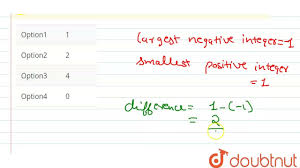 Option1 1
largest negative integer=-1
Option2 2
smallest positive integer
= 1
Option3 4
Option4 0
difference = 1-(-1)
= 2
doubtnut